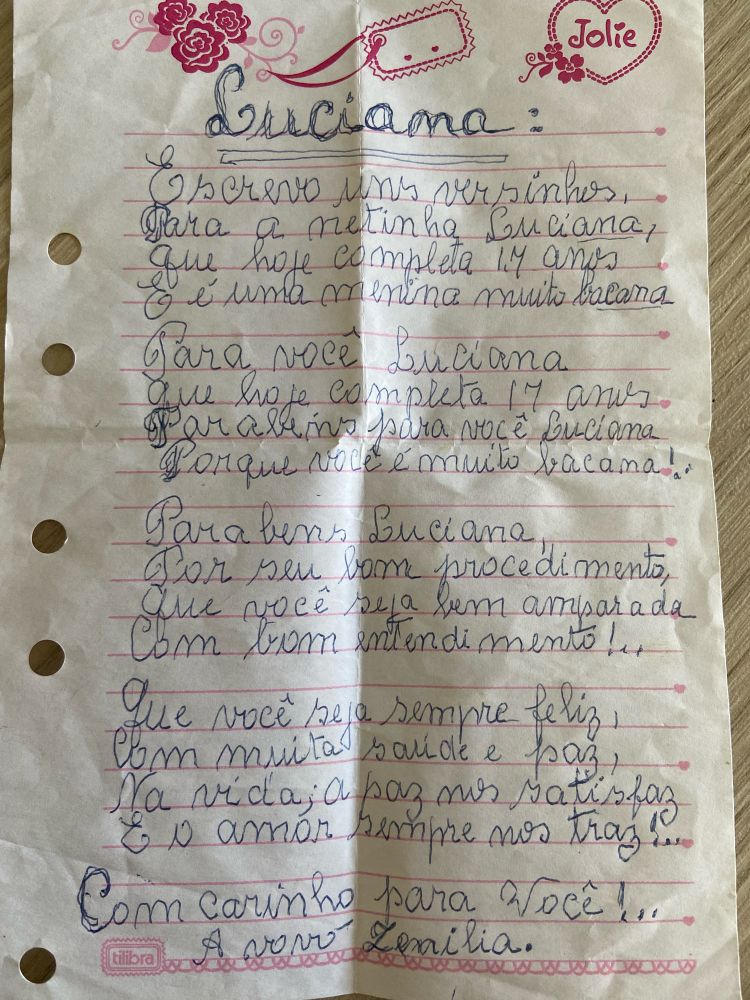 Jolie
Luciana:
Escrevo uns versinhos,
Para a netinha Luciana,
Que hoje completa 17 anos
E é uma menina muito bacana
Para você Luciana
Que hoje completa 17 anos
Parabens para você Luciana
Porque você é muito bacana!..
Parabens Luciana,
Por seu bom procedimento,
Que você seja bem amparada
Com bom entendimento!...
Que você seja sempre feliz,
Com muita saúde e paz,
Na vida; a paz nos satisfaz
E o amôr sempre nos traz!...
Com carinho para Você!...
A vovó Zemilia.
tilibra